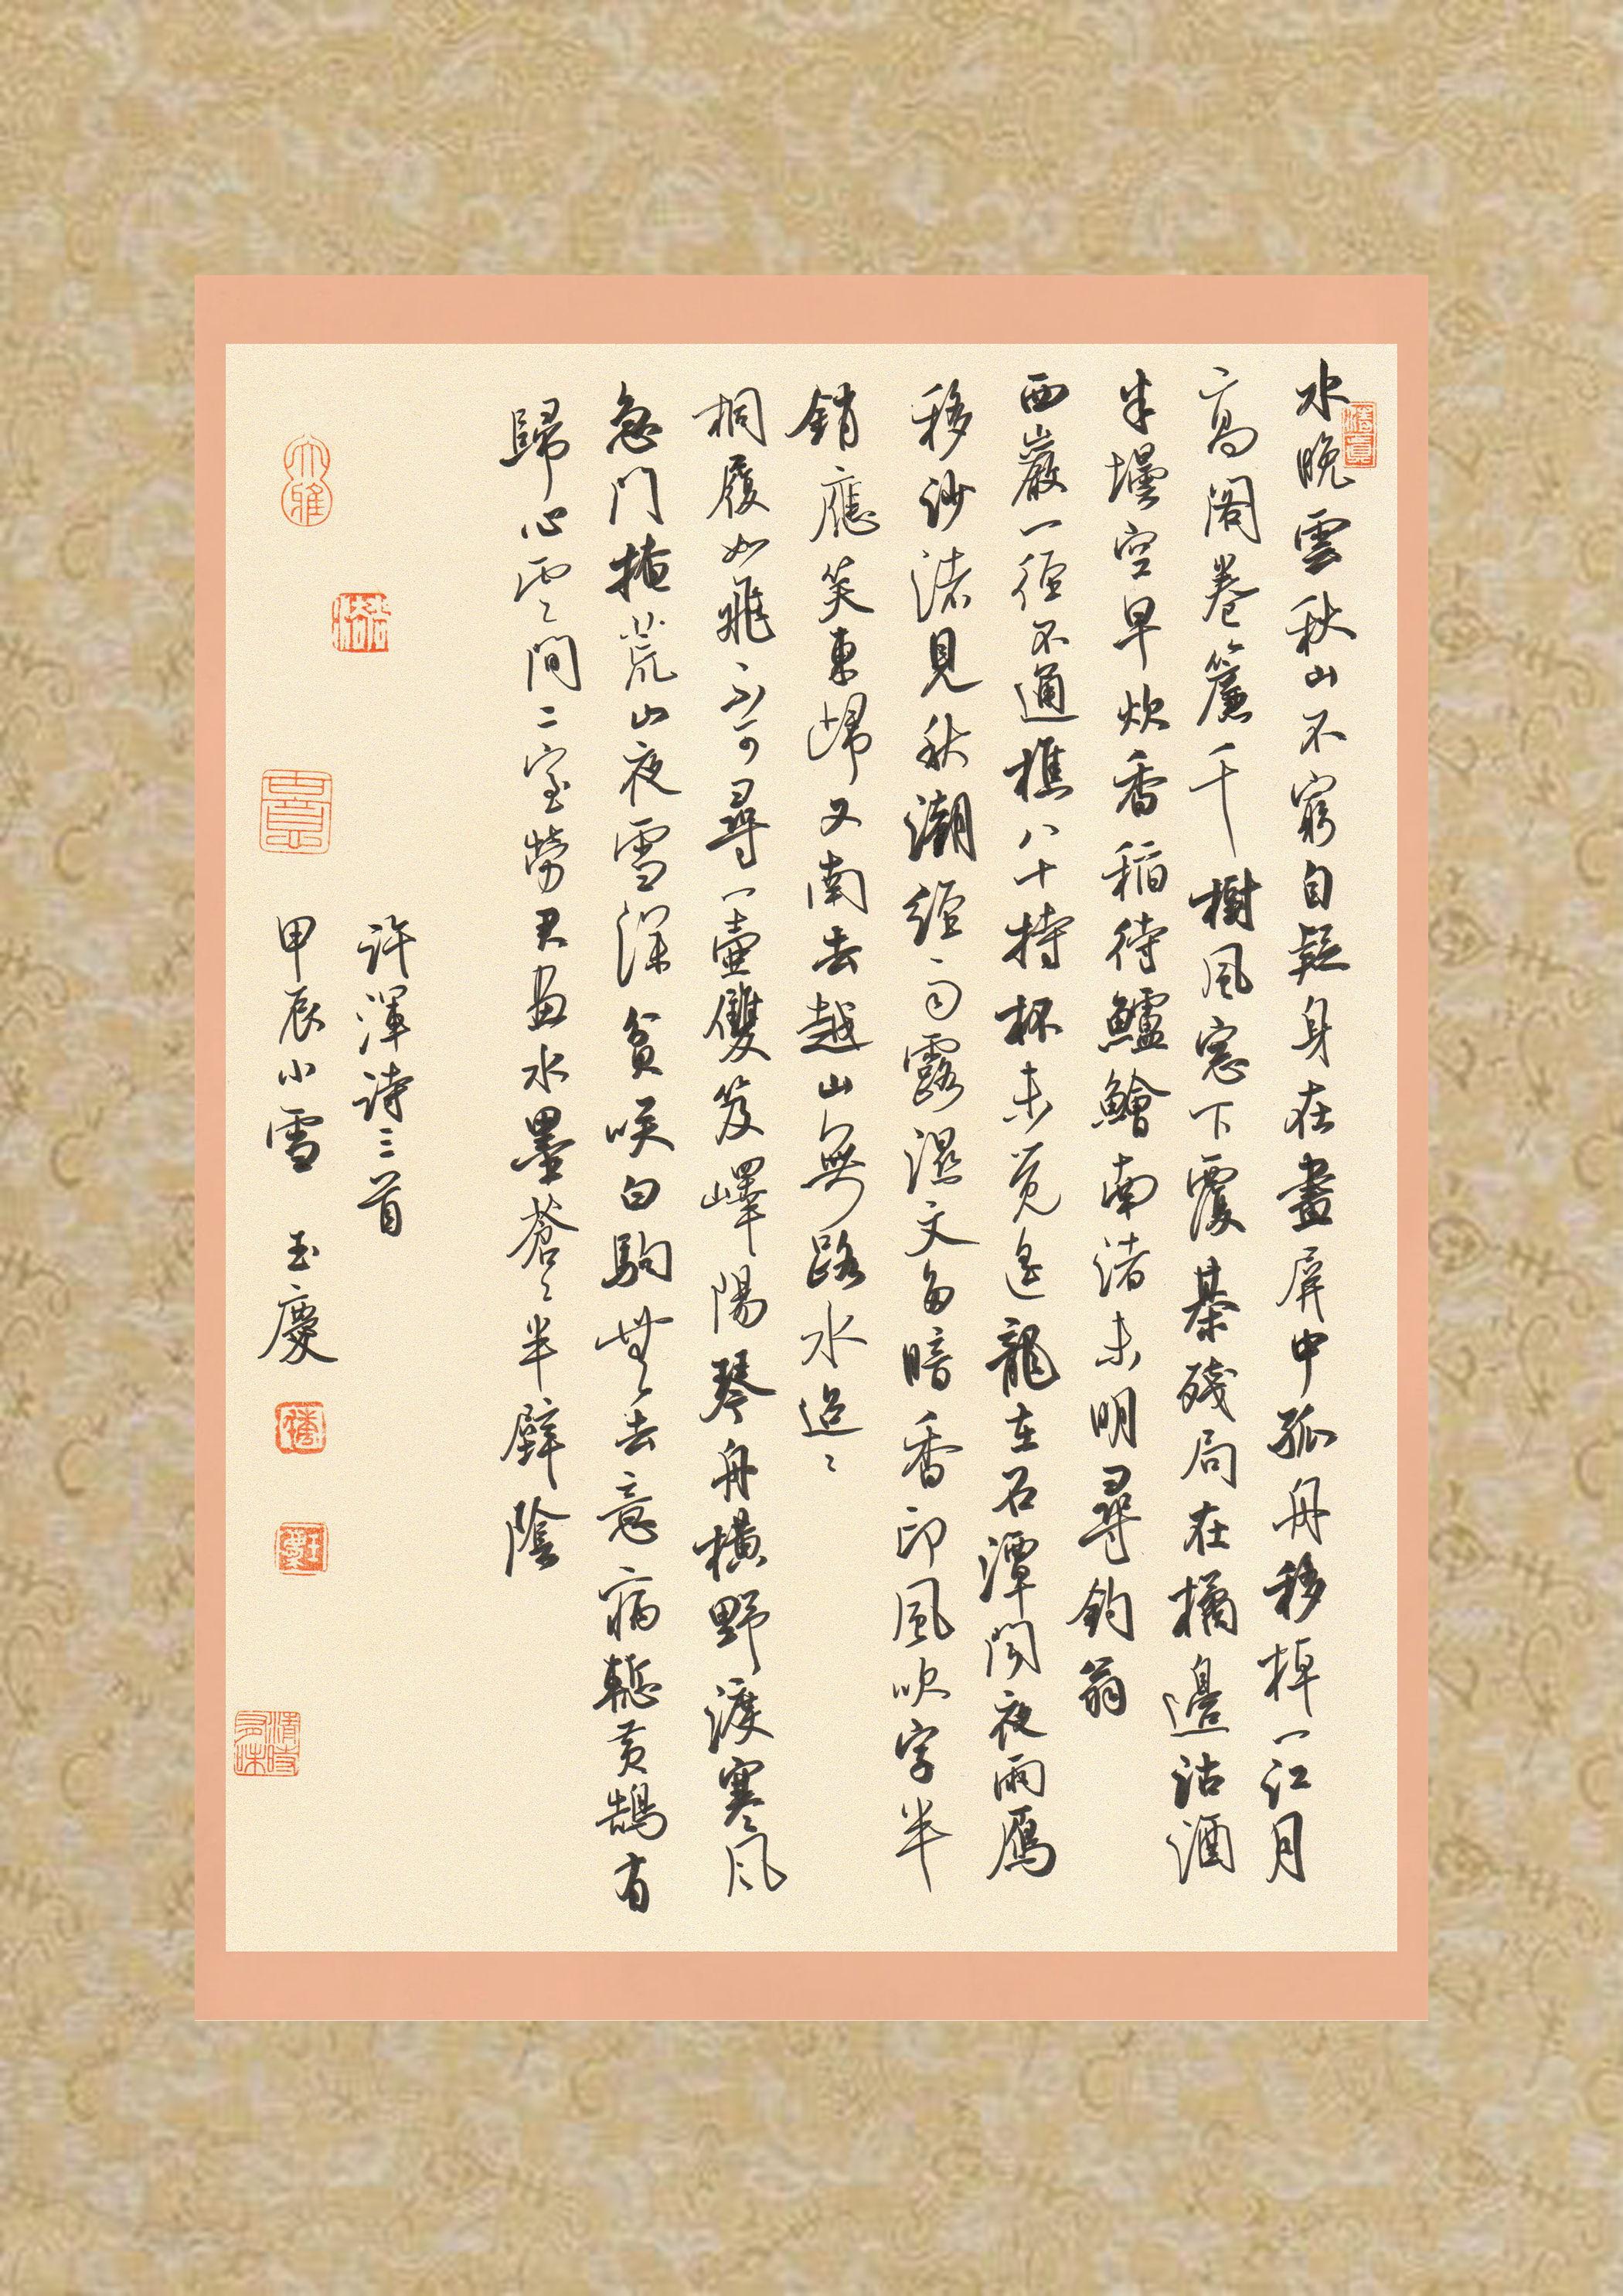 水晚雲秋山不窮自疑身在畫屏中孤舟移棹一江月
高閣卷簾千樹風窓下覆棊殘局在橘邊沽酒
半壜空早炊香稻待鱸鱠南渚未明尋釣翁
西巖一徑不通樵八十持杯未覓遙龍在石潭聞夜雨雁
移沙渚見秋潮經函露濕文多暗香印風吹字半
銷應笑東歸又南去越山無路水迢〻
桐履如飛不可尋一壺雙笈嶧陽琴舟橫野渡寒風
急門掩荒山夜雪深貧咲白駒無去意病慙黃鵠有
歸心雲間二室勞君畫水墨蒼〻半壁陰
許渾詩三首
甲辰小雪 玉慶
清真
大雅
清時有味